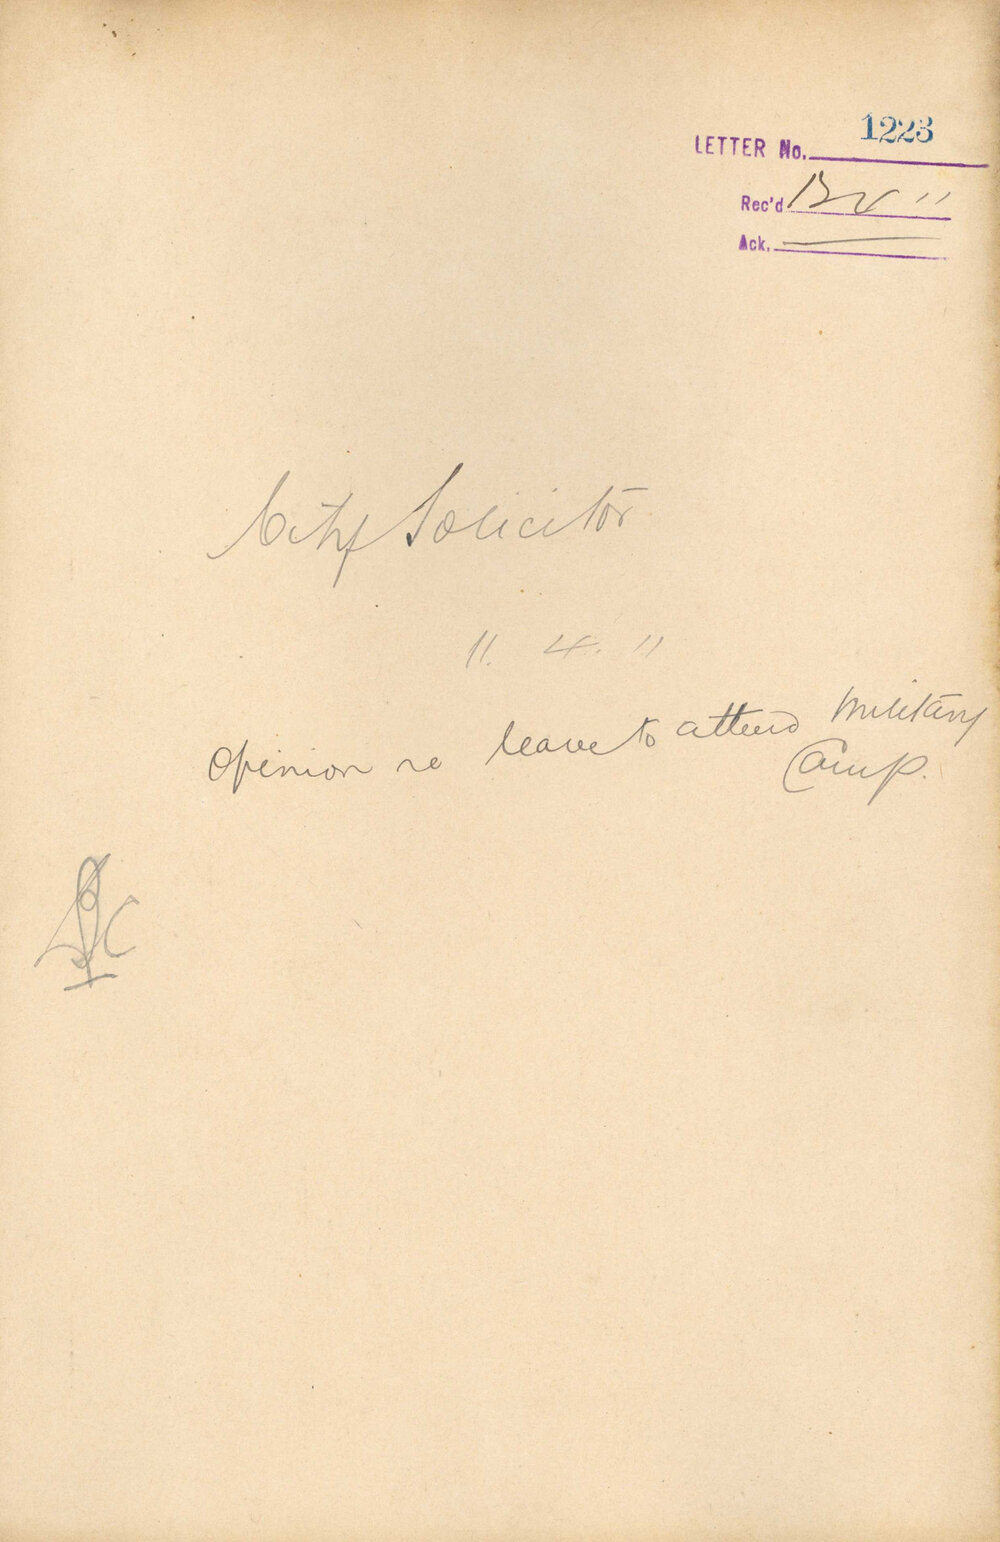 LETTER No. 1223
Rec'd 12 4 11
Ack.
City Solicitor
11. 4. 11
Opinion re leave to attend Military
Camp.